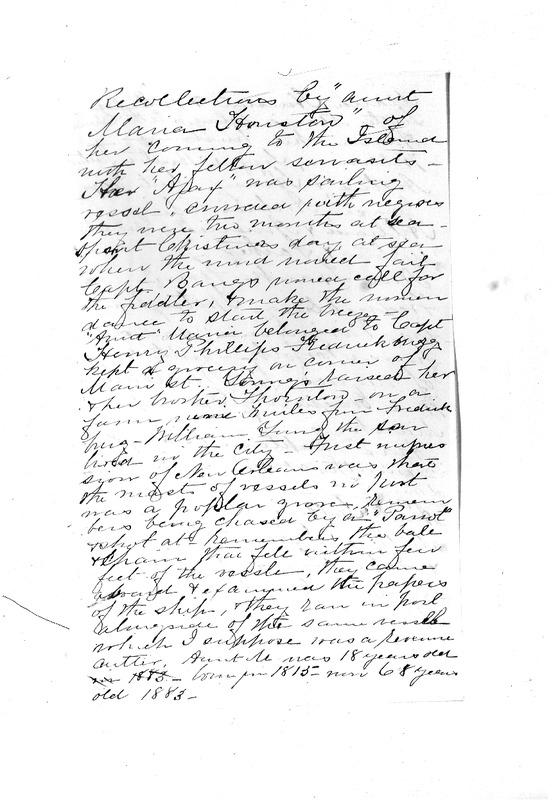 Recollections by "aunt
Maria Houston" of
her coming to the Island
with her fellow servants -
Ther "Ajax" was sailing
vessel, crowded with negroes
they were two months at sea -
spent Christmas day, at sea
when the wind naked fail
Capt. Bangs would call for
the fiddler, & make the women
dance to start the breeze -
"Aunt" Maria belonged to Capt
Henry Phillips Fredericksburg
kept a grocery on corner of
Main st. raised her
& her brother Thornton - on a
farm miles from Frederick
burg - William the son
lived in the city - First impres
sion of New Orleans was that
the masts of vessels in Port
was a poplar grove, Remem
bers being chased by a "Parrot"
& shot at - Remembers the bale
& chain that fell within few
feet of the vessle, they came
aboard & examined the papers
of the ship, & they ran in port
alongside of the same vessle
which I suppose was a Revenue
cutter, Aunt M was 18 years old
1883 - born in 1815 - now 68 years
old 1883 -